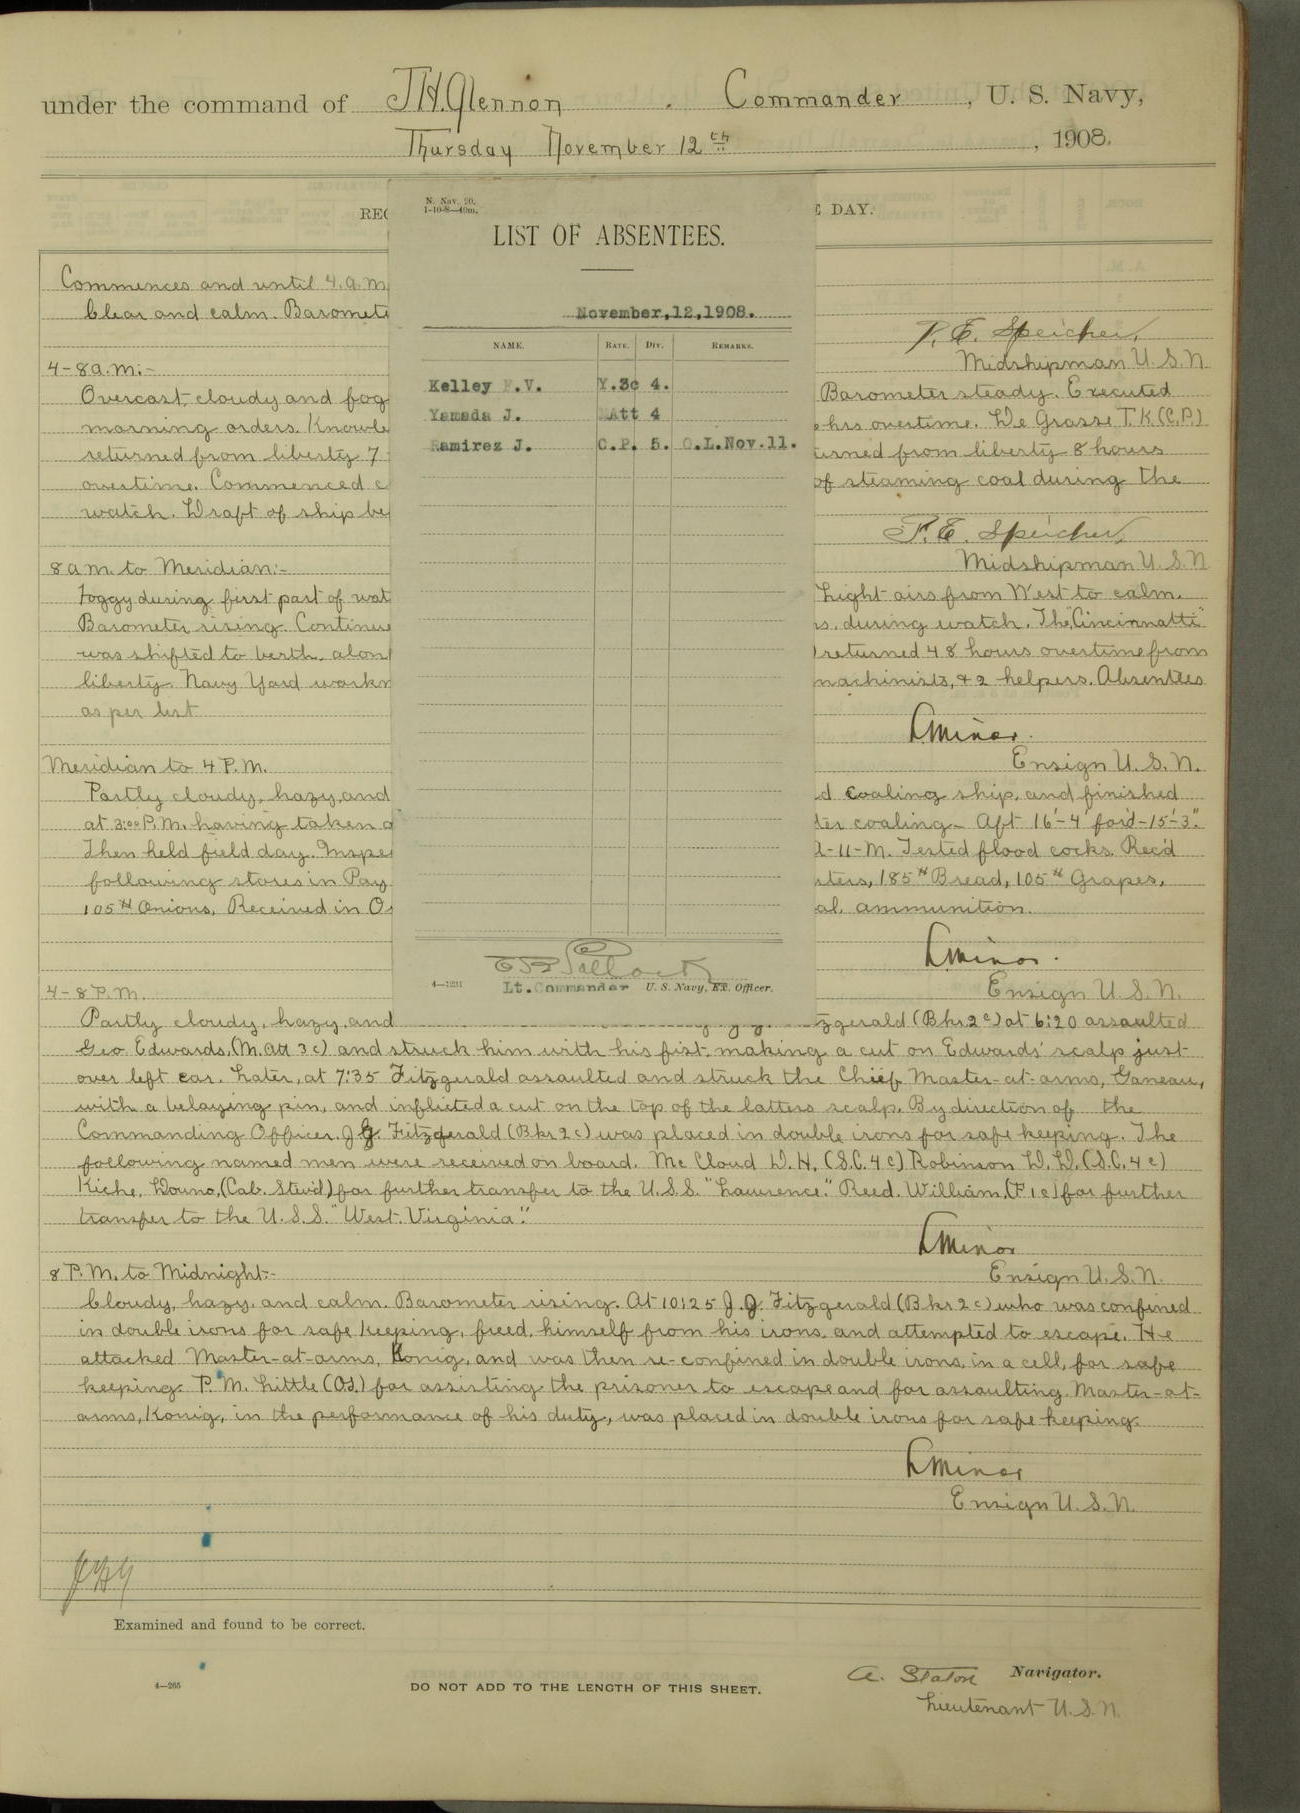 under the command of J.H. Glennon, Commander, U. S. Navy,
Thursday November 12th, 1908.
REC
E DAY.
Commences and until 4. a.m.
Clear and calm. Baromete
P. E. Speicher,
Midshipman U.S.N
4-8 a.m:-
Overcast, cloudy and fog
Barometer steady. Executed
morning orders. Knowle
hrs overtime. De Grasse T.K (C.P.)
returned from liberty 7
urned from liberty 8 hours
overtime. Commenced c
of steaming coal during the
watch. Draft of ship be
P. E. Speicher,
Midshipman U.S.N
8 a.m. to Meridian:-
Foggy during first part of wat
Light airs from West to calm.
Barometer rising. Continue
s. during watch. The "Cincinnatti"
was shifted to berth alon
) returned 48 hours overtime from
liberty. Navy Yard workm
machinists, & 2 helpers. Absentees
as per list
L Minor.
Ensign U.S.N.
Meridian to 4 P.M.
Partly cloudy, hazy, and
d coaling ship, and finished
at 3:00 P.M. having taken
ter coaling - Aft 16'-4" for'd-15'-3".
Then held field day. Inspe
A-11-M. Tested flood cocks. Rec'd
following stores in Pay
sters, 185# Bread, 105# Grapes,
105# Onions. Received in O
al. ammunition.
L Minor.
Ensign U.S.N.
4-8 P.M.
Partly cloudy, hazy, and
zgerald (Bkr. 2c) at 6:20 assaulted
Geo Edwards, (M. Att 3c) and struck him with his fist, making a cut on Edwards' scalp just
over left ear. Later, at 7:35 Fitzgerald assaulted and struck the Chief Master-at-arms, Ganeau,
with a belaying pin, and inflicted a cut on the top of the latters scalp. By direction of the
Commanding Officer. J.J. Fitzgerald (Bkr 2c) was placed in double irons for safe keeping. The
following named men were received on board. Mc Cloud D.H. (S.C. 4c) Robinson W.W. (S.C. 4c)
Kiche, Douno, (Cab. Stew'd) for further transfer to the U.S.S. "Lawrence." Reed. William, (F1c) for further
transfer to the U.S.S. "West. Virginia".
L Minor
Ensign U.S.N.
8 P.M. to Midnight:-
Cloudy, hazy, and calm. Barometer rising. At 10:25 J.J. Fitzgerald (Bkr 2c) who was confined
in double irons for safe keeping, freed himself from his irons, and attempted to escape. He
attacked Master-at-arms, Konig, and was then re-confined in double irons, in a cell, for safe
keeping. P. M. Little (Od.) for assisting the prisoner to escape and for assaulting Master-at-
arms, Konig, in the performance of his duty, was placed in double irons for safe keeping.
L Minor
Ensign U.S.N.
Examined and found to be correct.
A. Staton Navigator.
Lieutenant U.S.N.
4—265
DO NOT ADD TO THE LENGTH OF THIS SHEET.
N. Nav. 20.
1-10-8—40m.
LIST OF ABSENTEES.
November,12,1908.
NAME. RATE. DIV. REMARKS.
Kelley F.V. Y.3c 4.
Yamada J. MAtt 4
Ramirez J. C.P. 5. O.L.Nov.11.
Lt.Commander U. S. Navy, Ex. Officer.
4—1231